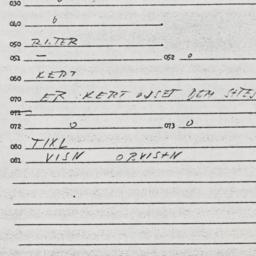 030
040 6
050 RITER
051 — 052 0
060 KERT
070 ER KERT OJSET DEM
071
072 0 073 0
080 TIKL
081 VISN OPVISHN